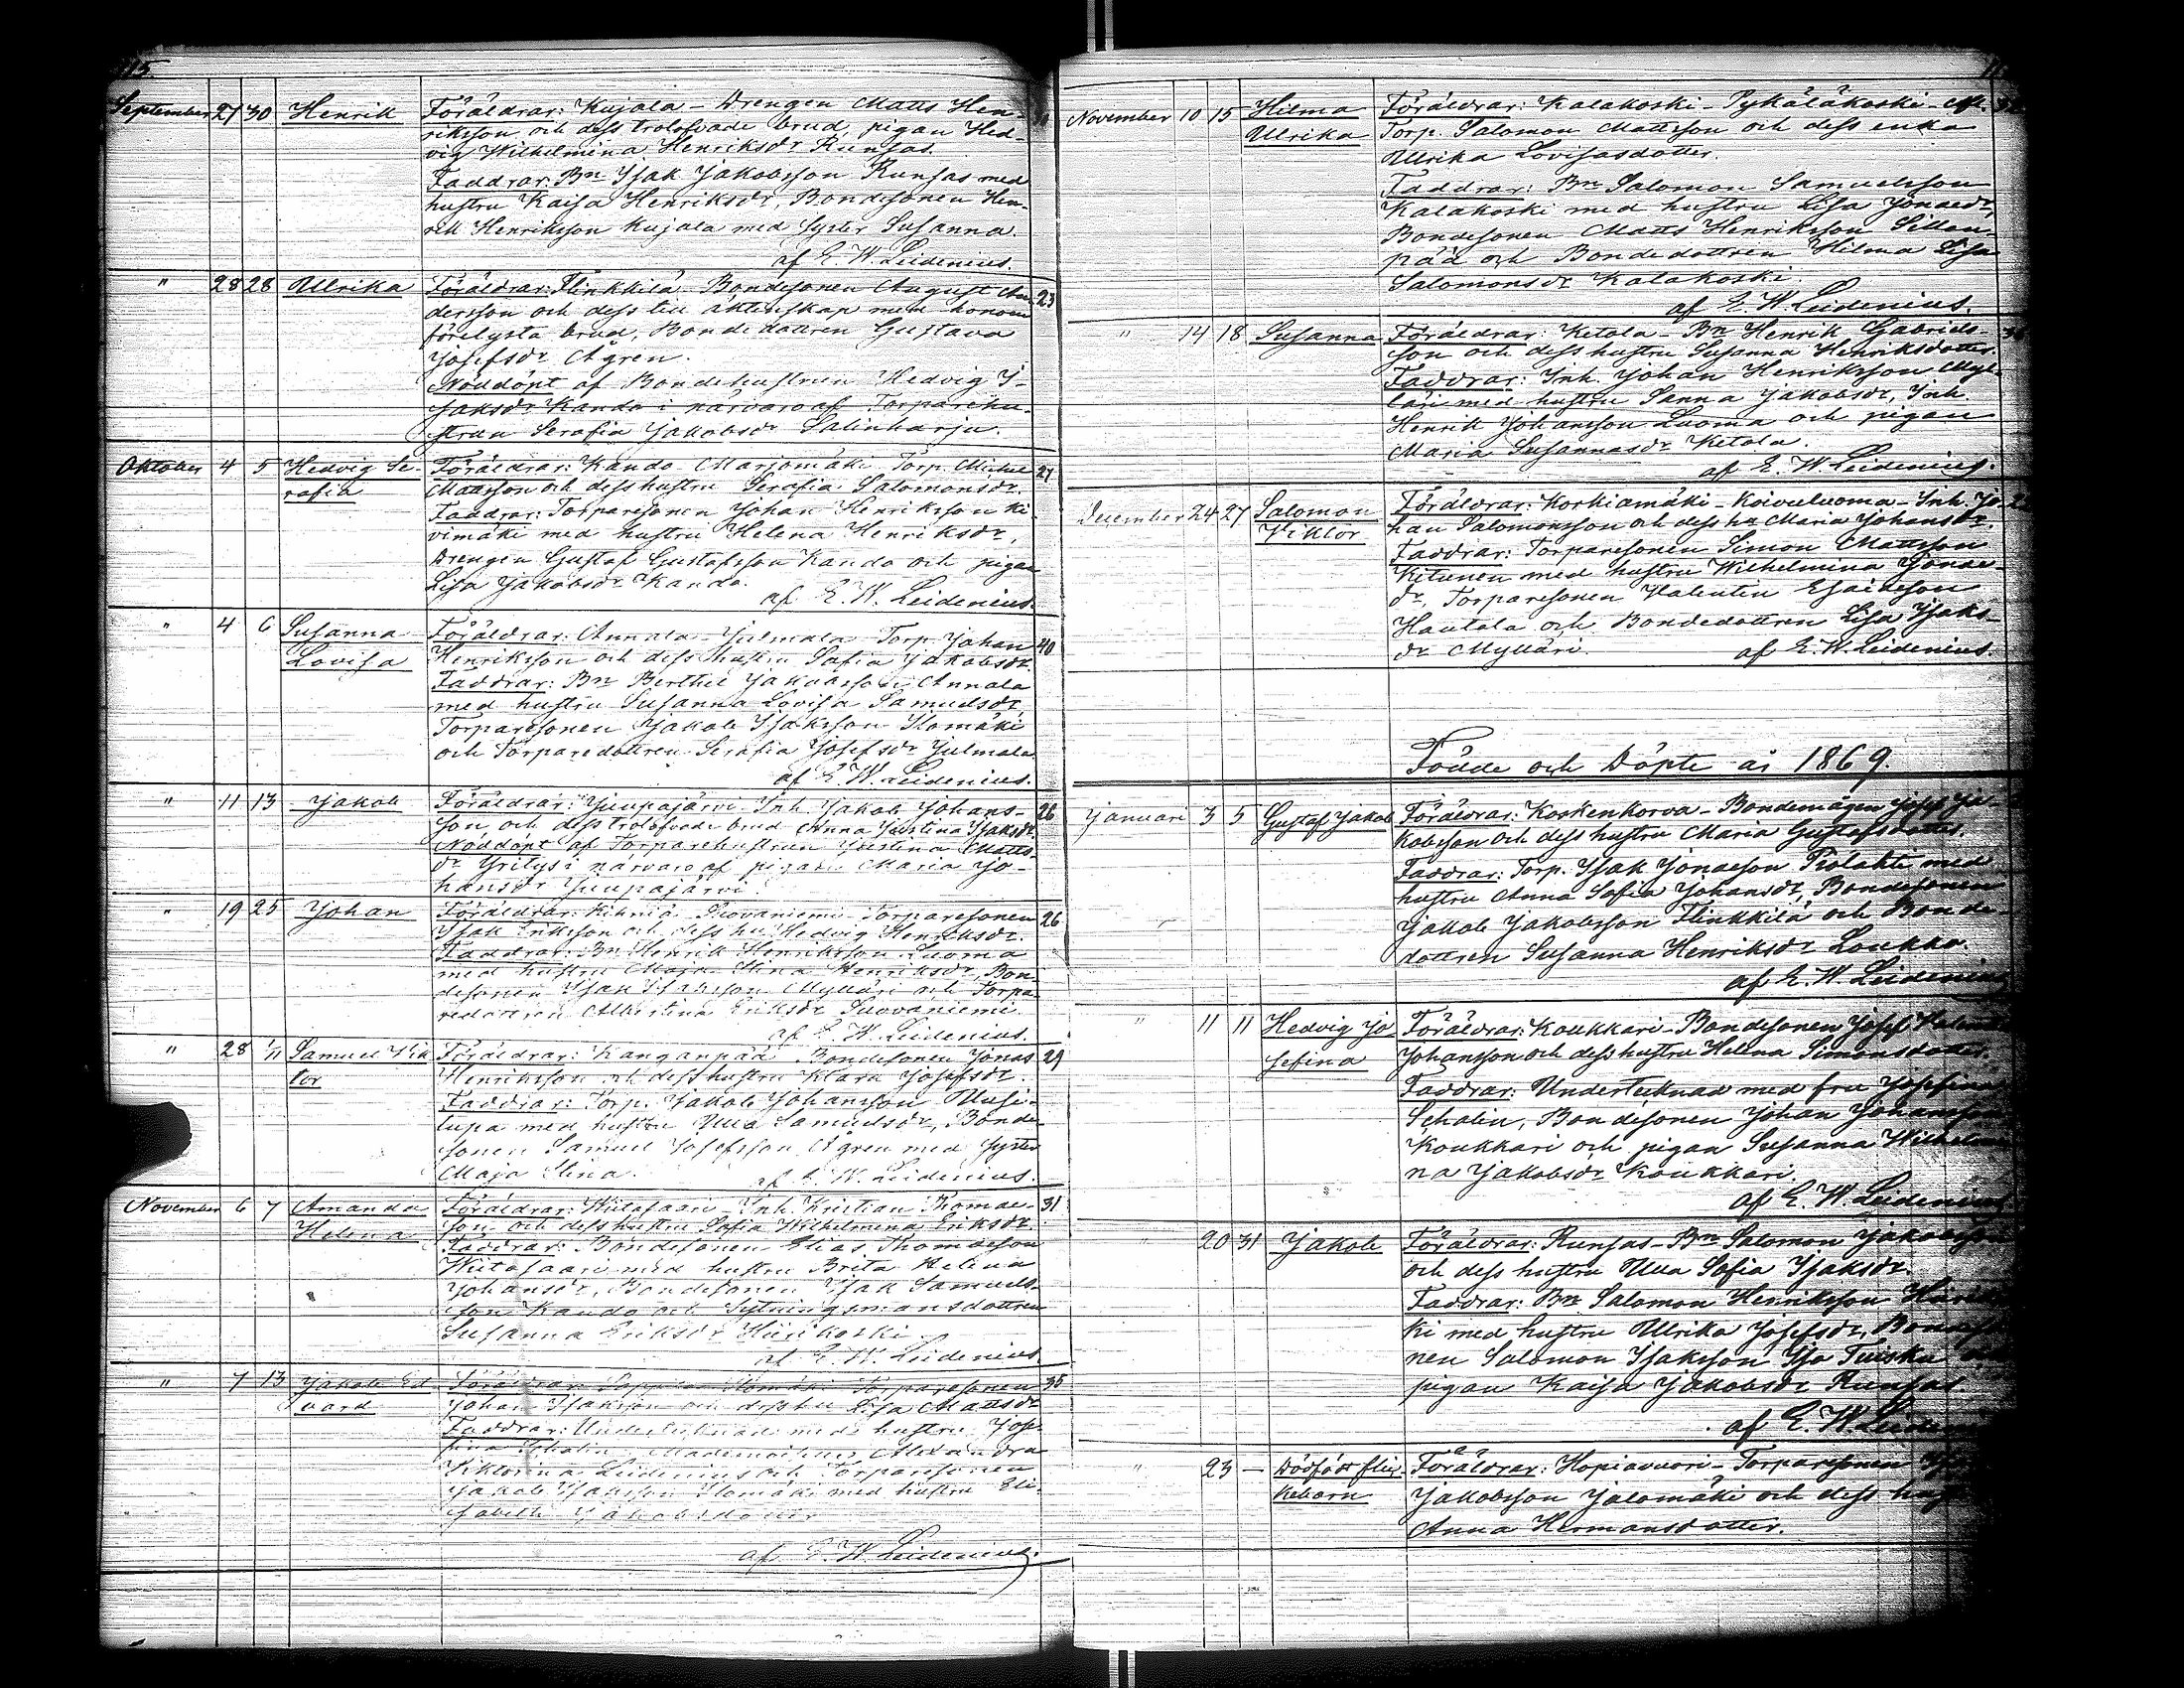 115.
September 27 30 Henrik Föräldrar: Kujala - Drengen Matts Hen-
riksson och dess trolofvade brud, pigan Hed-
vig Wilhelmina Henriksdr Runsas.
Faddrar: Bn Isak Jakobsson Runsas med
hustru Kaisa Henriksdr, Bondesonen Hen-
rik Henriksson Kujala med syster Susanna
af E. W. Leidenius.
" 28 28 Ullrika Föräldrar: Flinkkilä - Bondesonen August An- 23
dersson och dess till äktenskap med honom
förelysta brud, Bondedottren Gustava
Josefsdr Ågren.
Nöddöpt af Bondehustrun Hedvig I-
saksdr Kando i närvaro af Torparehu-
strun Serafia Jakobsdr Salinharju.
Oktober 4 5 Hedvig Se- Föräldrar: Kando - Marjomäki Torp. Michel 27
rafia Mattsson och dess hustru Serafia Salomonsdr.
Faddrar: Torparesonen Johan Henriksson Ki-
vimäki med hustru Helena Henriksdr,
Drengen Gustaf Gustafsson Kando och pigan
Lisa Jakobsdr Kando.
af E. W. Leidenius.
" 4 6 Susanna Föräldrar: Annala - Julmala Torp. Johan 40
Lovisa Henriksson och dess hustru Sofia Jakobsdr.
Faddrar: Bn Berthil Jakobsson Annala
med hustru Susanna Lovisa Samuelsdr,
Torparesonen Jakob Isaksson Ilomäki
och Torparedottren Serafia Josefsdr Julmala
af E. W. Leidenius.
" 11 13 Jakob Föräldrar: Juupajärvi - Inh. Jakob Johans- 26
son och dess trolofvade brud Anna Justina Isaksdr.
Nöddöpt af Torparehustrun Justina Matts-
dr Yritys i närvaro af pigan Maria Jo-
hansdr Juupajärvi
" 19 25 Johan Föräldrar: Kihniä Luovaniemi Torparesonen 26
Isak Eriksson och dess hu Hedvig Henriksdr.
Faddrar: Bn Henrik Henriksson Luoma
med hustru Maja Stina Henriksdr, Bon-
desonen Isak Isaksson Mylläri och Torpa-
redottren Albertina Eriksdr Luovaniemi
af E. W. Leidenius.
" 28 1/11 Samuel Vik- Föräldrar: Kanganpää Bondesonen Jonas 29
tor Henriksson och dess hustru Klara Josefsdr.
Faddrar: Torp. Jakob Johansson Uusi-
tupa med hustru Ulla Samuelsdr, Bonde-
sonen Samuel Josefsson Ågren med syster
Maja Stina.
af E. W. Leidenius.
November 6 7 Amanda Föräldrar: Wiitasaari - Inh. Kristian Thomae- 31
Helena son och dess hustru Sofia Wilhelmina Eriksdr.
Faddrar: Bondesonen Elias Thomaeson
Wiitasaari med hustru Brita Helena
Johansdr, Bondesonen Isak Samuels-
son Kando och Sytningsmansdottren
Susanna Eriksdr Hiirikoski.
af E. W. Leidenius.
" 7 13 Jakob Ed- Föräldrar: Ilomäki Torparesonen 35
vard Johan Isaksson och dess hu Lisa Mattsdr
Faddrar: Undertecknad med hustru Jose-
fina Schalin, Mademoiselle Alexandra
Viktorina Leidenius och Torparesonen
Jakob Isaksson Ilomäki med hustru Eli-
sabeth Jakobsdotter
af E. W. Leidenius.
November 10 15 Hilma Föräldrar: Kalakoski - Pykäläkoski -
Ullrika Torp. Salomon Mattsson och dess enka
Ullrika Lovisasdotter.
Faddrar: Bn Salomon Samuelsson
Kalakoski med hustru Lisa Jonaedr,
Bondesonen Matts Henriksson Sillan-
pää och Bondedottren Hilma Lisa
Salomonsdr Kalakoski.
af E. W. Leidenius.
" 14 18 Susanna Föräldrar: Ketola - Bn Henrik Gabriels-
son och dess hustru Susanna Henriksdotter.
Faddrar: Inh. Johan Henriksson Myl-
läri med hustru Sanna Jakobsdr, Inh.
Henrik Johansson Luoma och pigan
Maria Susannasdr Ketola.
af E. W. Leidenius.
December 24 27 Salomon Föräldrar: Korkiamäki - Koivuluoma - Inh. Jo-
Viktor han Salomonsson och dess hu Maria Johansdr.
Faddrar: Torparesonen Simon Mattsson
Kitunen med hustru Wilhelmina Jonae-
dr, Torparesonen Valentin Esaiaeson
Hautala och Bondedottren Lisa Isaks-
dr Mylläri.
af E. W. Leidenius.
Födde och Döpte år 1869.
Januari 3 5 Gustaf Jakob Föräldrar: Koskenkorva - Bondemågen Josef Ja-
kobsson och dess hustru Maria Gustafsdotter.
Faddrar: Torp. Isak Jonaeson Piolahti med
hustru Anna Sofia Johansdr, Bondesonen
Jakob Jakobsson Flinkkilä och Bonde-
dottren Susanna Henriksdr Loukko.
af E. W. Leidenius
" 11 11 Hedvig Jo- Föräldrar: Koukkari - Bondesonen Josef
sefina Johansson och dess hustru Helena Simonsdotter.
Faddrar: Undertecknad med fru Josefina
Schalin, Bondesonen Johan Johansson
Koukkari och pigan Susanna Wilhelmi-
na Jakobsdr Koukkari.
af E. W. Leidenius
" 20 31 Jakob Föräldrar: Runsas - Bn Salomon Jakobsson
och dess hustru Ulla Sofia Isaksdr.
Faddrar: Bn Salomon Henriksson
ki med hustru Ullrika Josefsdr,
nen Salomon Isaksson Iso Tuisku
pigan Kaisa Jakobsdr Runsas
af E. W. Leide
" 23 — Dödfödt flic- Föräldrar: Hopiavuori - Torparesonen
kebarn Jakobsson Jalomäki och dess
Anna Hermansdotter.